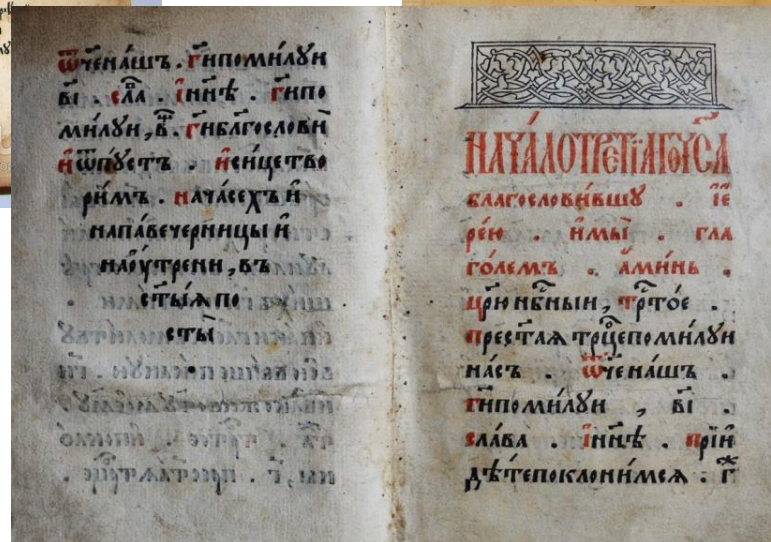 Ѿче на́шъ . Гн҃ипоми́лꙋи
ві҃ . сла́ . і҆ нн҃ѣ . гн҃ипо
ми́лꙋи , в҃ . гн҃иблагослови́
и҆ѿпꙋстъ . и҆сицетво
ри́мъ . начасе́хъ и҆
напавечерницы и҆
наоу҆трени , въ
ст҃ы́ѧ по
сты̀
НАЧА́ЛОТРЕТІ́АГОЧСА̀
благослови́вшꙋ . і҆е
ре́ю . и҆мы̀ . гла
го́лемъ . а҆ми́нь .
цр҃ю нбн҃ыи , трт҃о́е .
прест҃ая трц҃епоми́лꙋи
на́съ . Ѿче на́шъ .
гн҃ипоми́лꙋи , ві҃ .
сла́ва . і҆ нн҃ѣ . прїи
дѣ́тепоклони́мсѧ . г҃